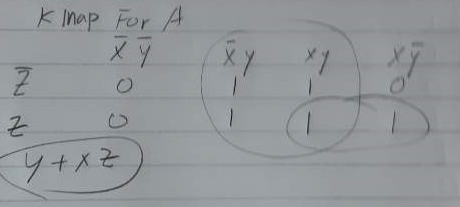 K Map For A
X̅ Y̅ X̅ y xy X Y̅
Z̅ 0 1 1 0
Z 0 1 1 1
y + x z